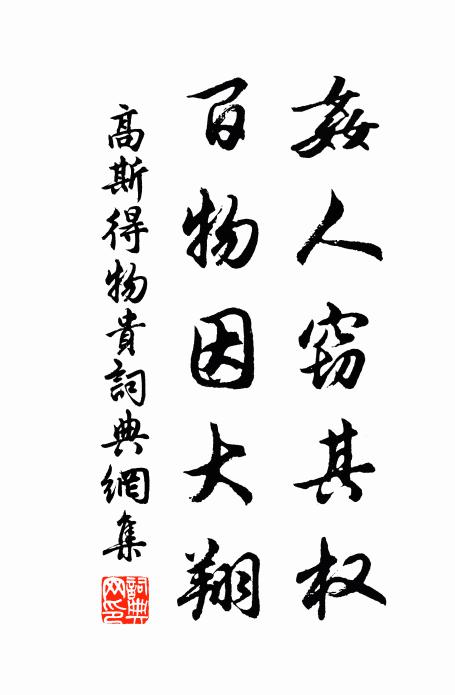 姦人窃其权
百物因大翔
高斯得物貴詞典網集
詞典网印